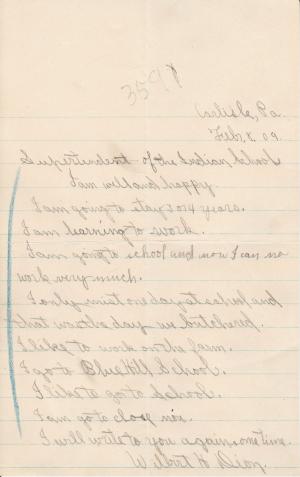 3597
Carlisle, Pa.
Feb. 8, 09.
Supertendent of the Indian School
I am well and happy.
I am going to stay 3 or 4 years.
I am learning to work.
I am going to school and now I can no
work very much.
I only mist one day at school and
that was the day we butchered.
I like to work on the farm.
I go to Blue Hill School.
I like to go to School.
I am go to close now.
I will write to you again some time.
Wilbert H Dion.